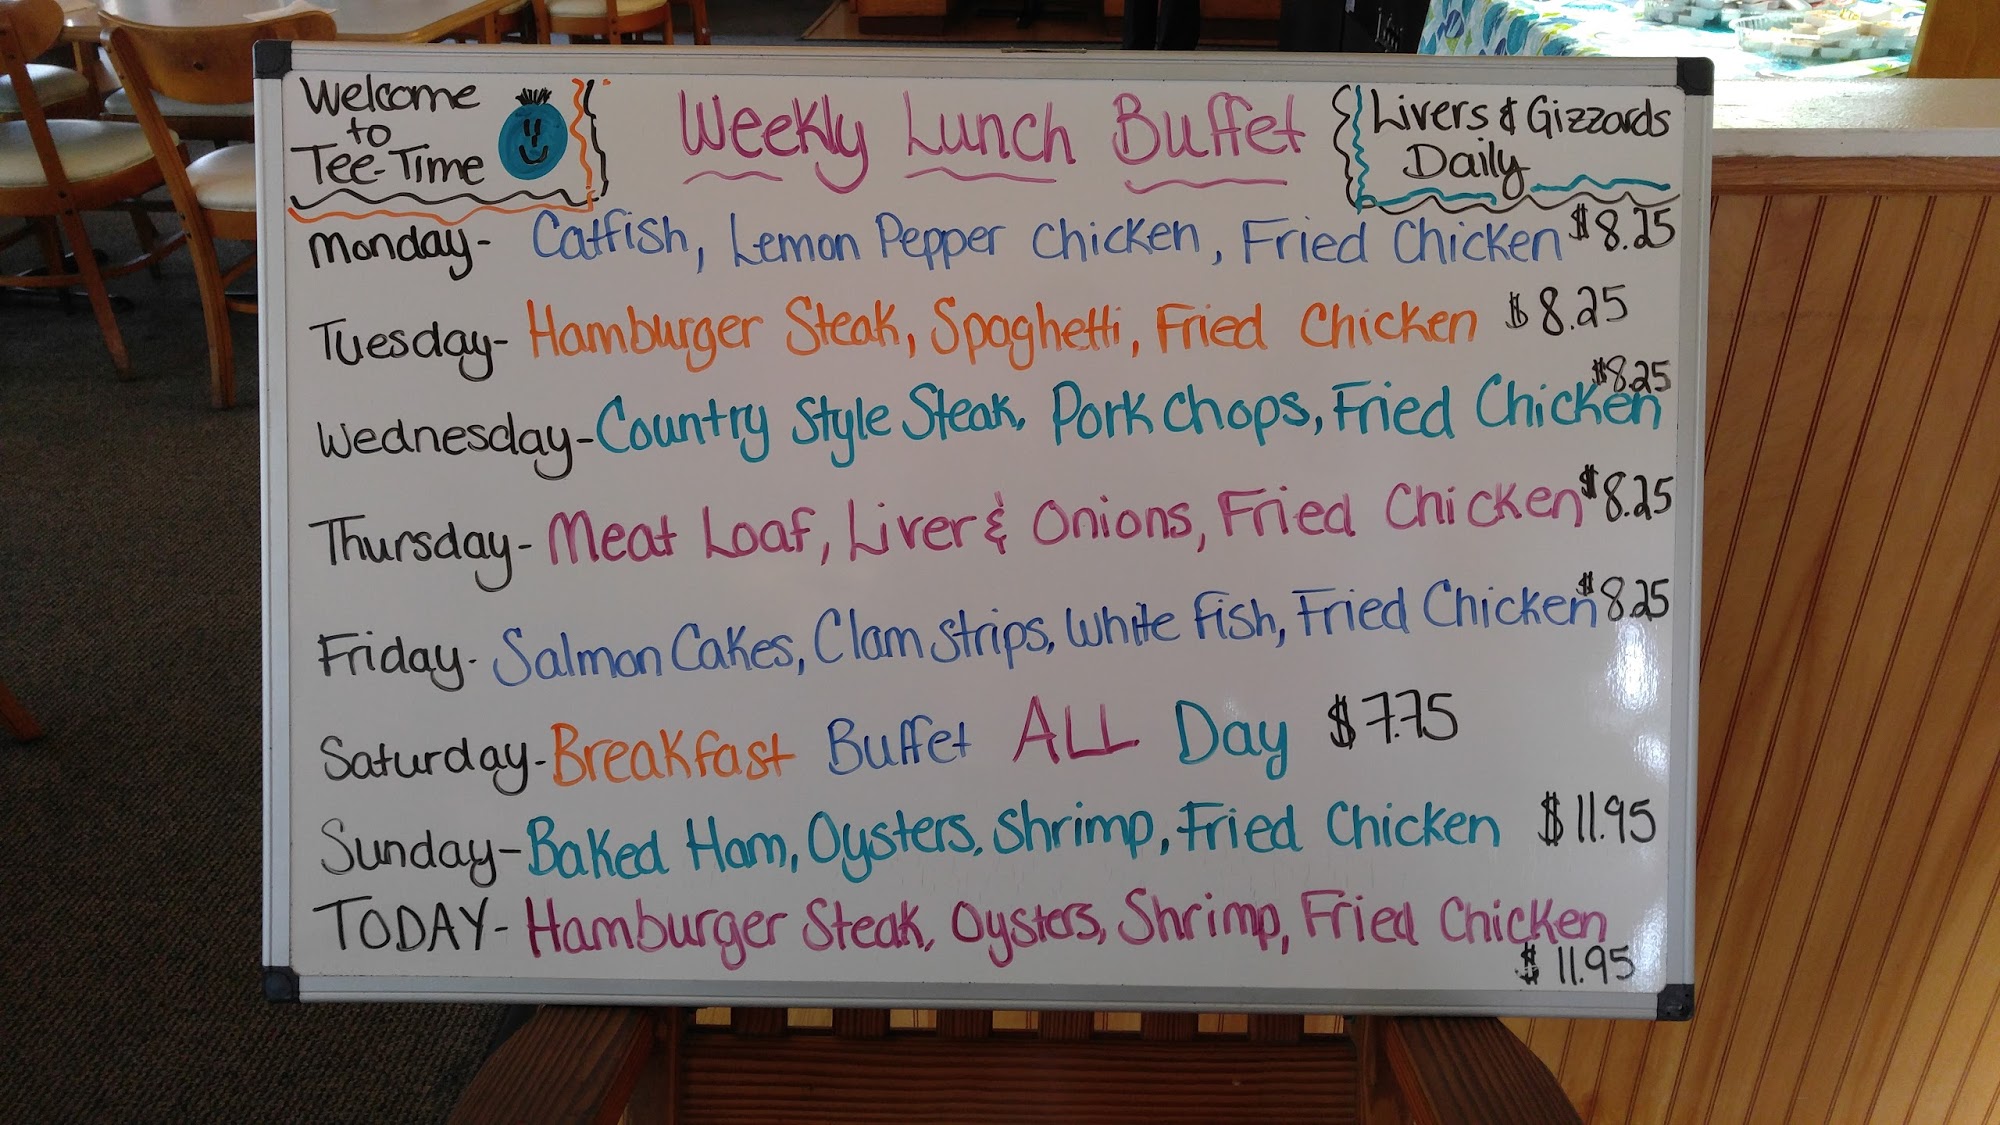 Welcome
to
Tee-Time
Weekly Lunch Buffet
Livers & Gizzards
Daily
Monday- Catfish, Lemon Pepper Chicken, Fried Chicken $8.25
Tuesday- Hamburger Steak, Spaghetti, Fried Chicken $8.25
Wednesday- Country Style Steak, Pork Chops, Fried Chicken $8.25
Thursday- Meat Loaf, Liver & Onions, Fried Chicken $8.25
Friday- Salmon Cakes, Clam Strips, White Fish, Fried Chicken $8.25
Saturday- Breakfast Buffet ALL Day $7.75
Sunday- Baked Ham, Oysters, Shrimp, Fried Chicken $11.95
TODAY- Hamburger Steak, Oysters, Shrimp, Fried Chicken
$11.95